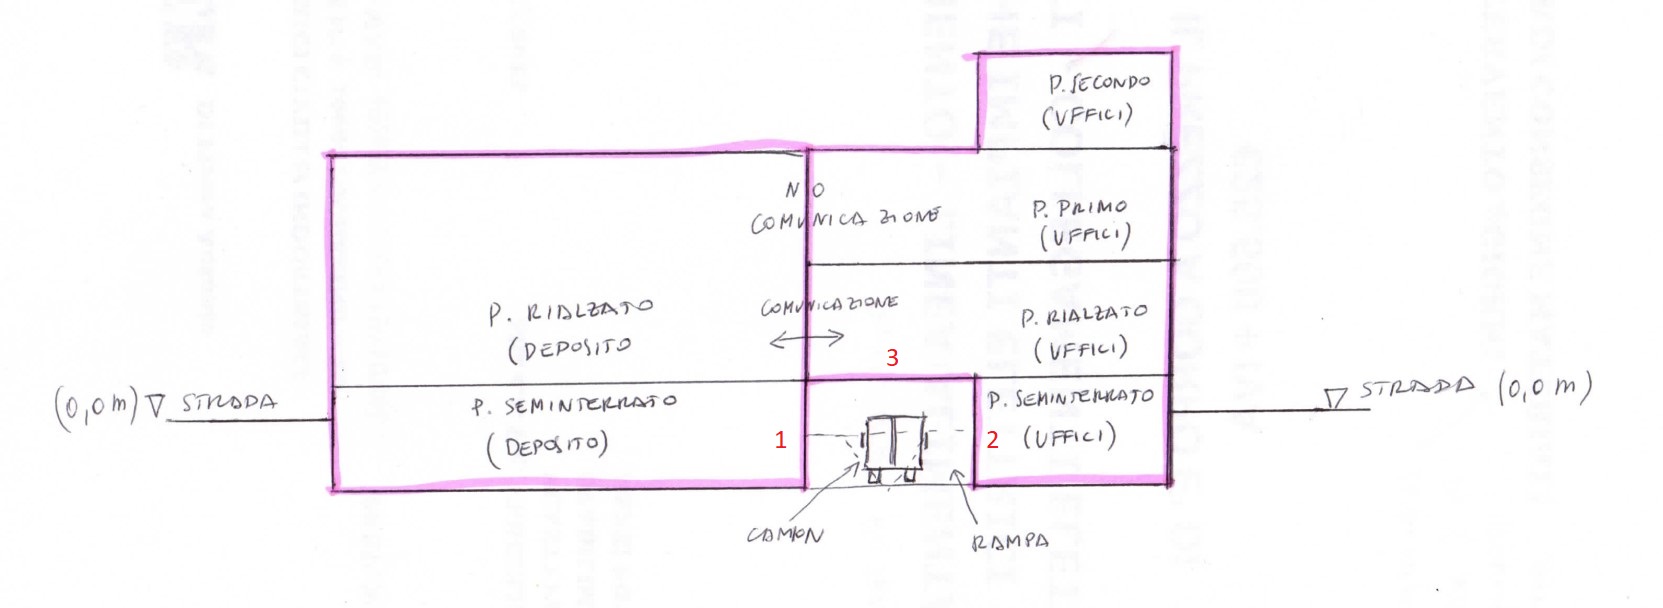 P. SECONDO
(UFFICI)
NO
COMUNICAZIONE
P. PRIMO
(UFFICI)
P. RIALZATO
(DEPOSITO
COMUNICAZIONE
P. RIALZATO
(UFFICI)
3
(0,0 m) STRADA
P. SEMINTERRATO
(DEPOSITO)
1
2
P. SEMINTERRATO
(UFFICI)
STRADA (0,0 m)
CAMION
RAMPA